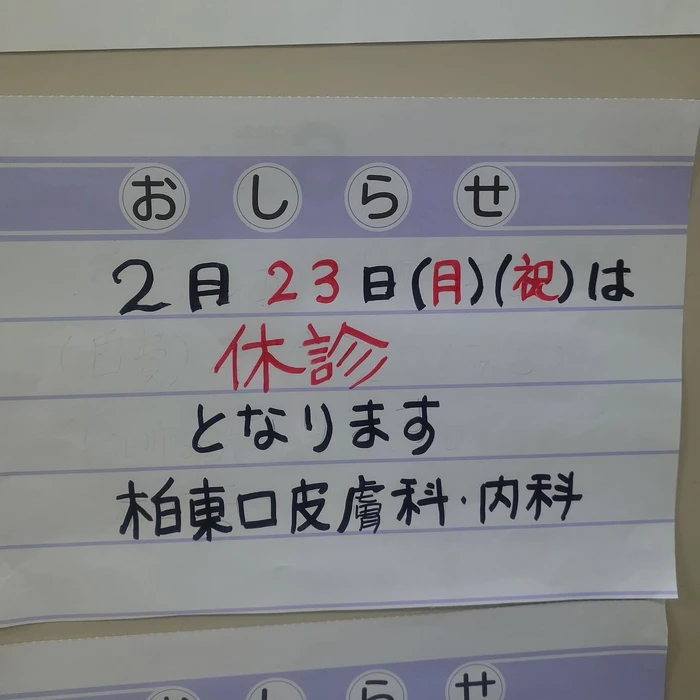 おしらせ
2月23日(月)(祝)は
休診
となります
柏東口皮膚科・内科
おしらせ